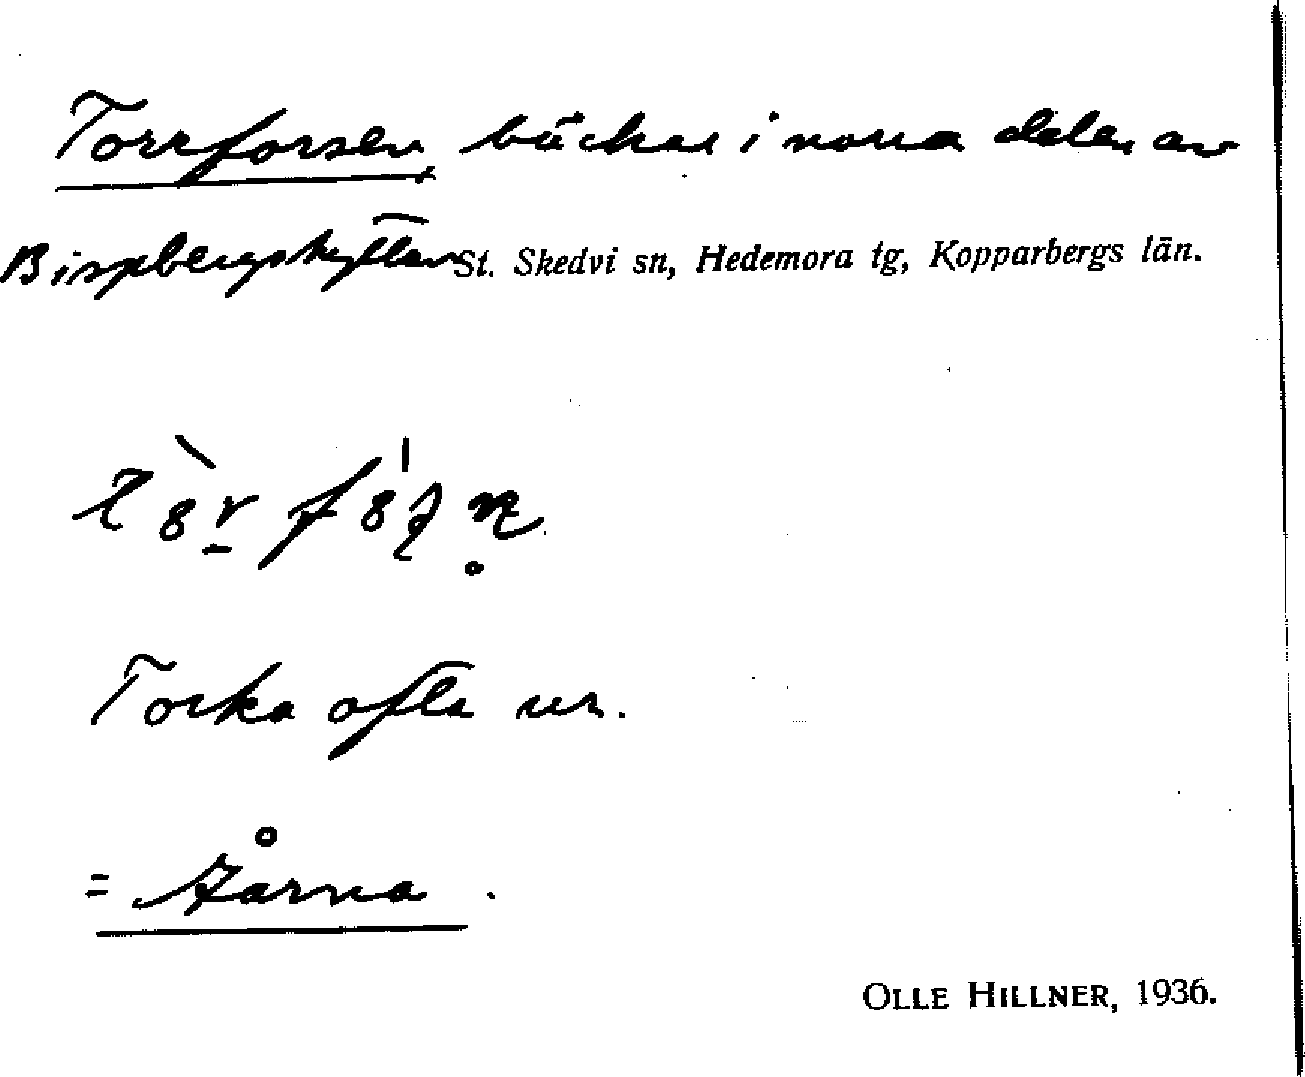 Torrforsen, bäckar i norra delen av
Bispbergshyttan St. Skedvi sn, Hedemora tg, Kopparbergs län.
Torka ofta ur.
=
OLLE HILLNER, 1936.